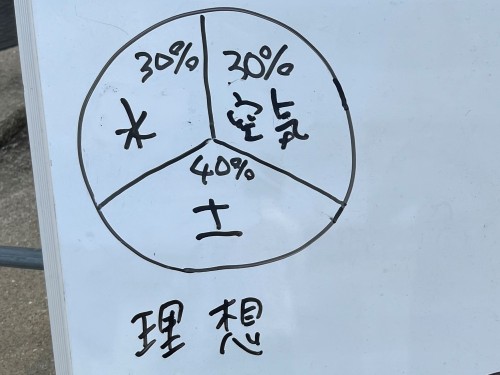 30% 30%
水 空気
40%
土
理想